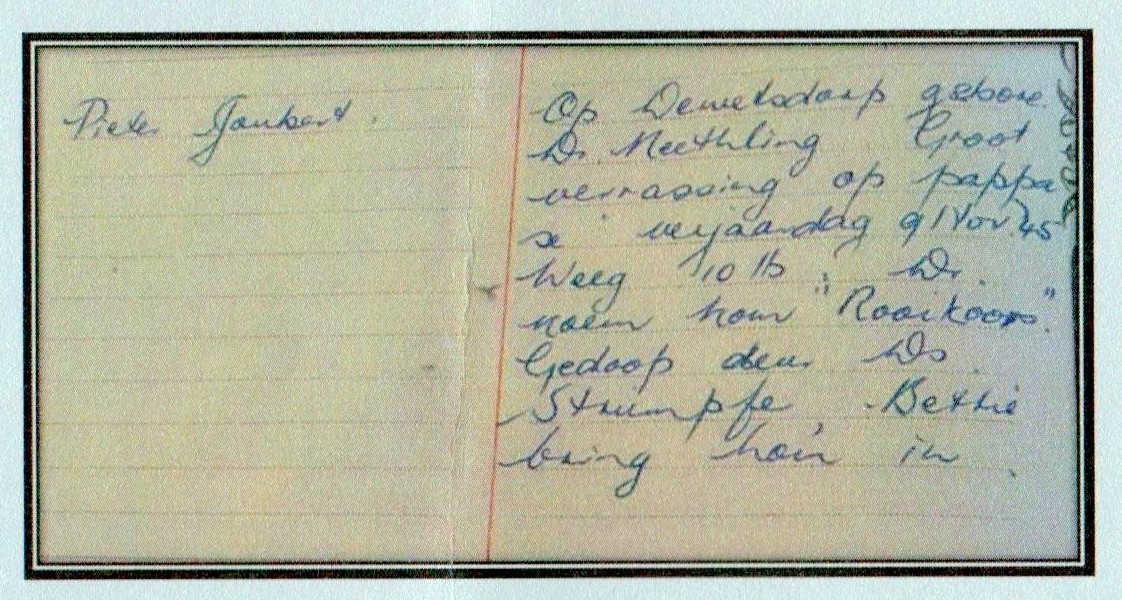 Pieter Joubert.
Op Dewetsdorp gebore.
Dr. Meethling Groot
verrassing op pappa
se verjaardag 9 Nov. 45
Weeg 10 lb ; Dr.
noem hom "Rooikoos".
Gedoop deur Ds
Strumpfe, Bettie
bring hom in.